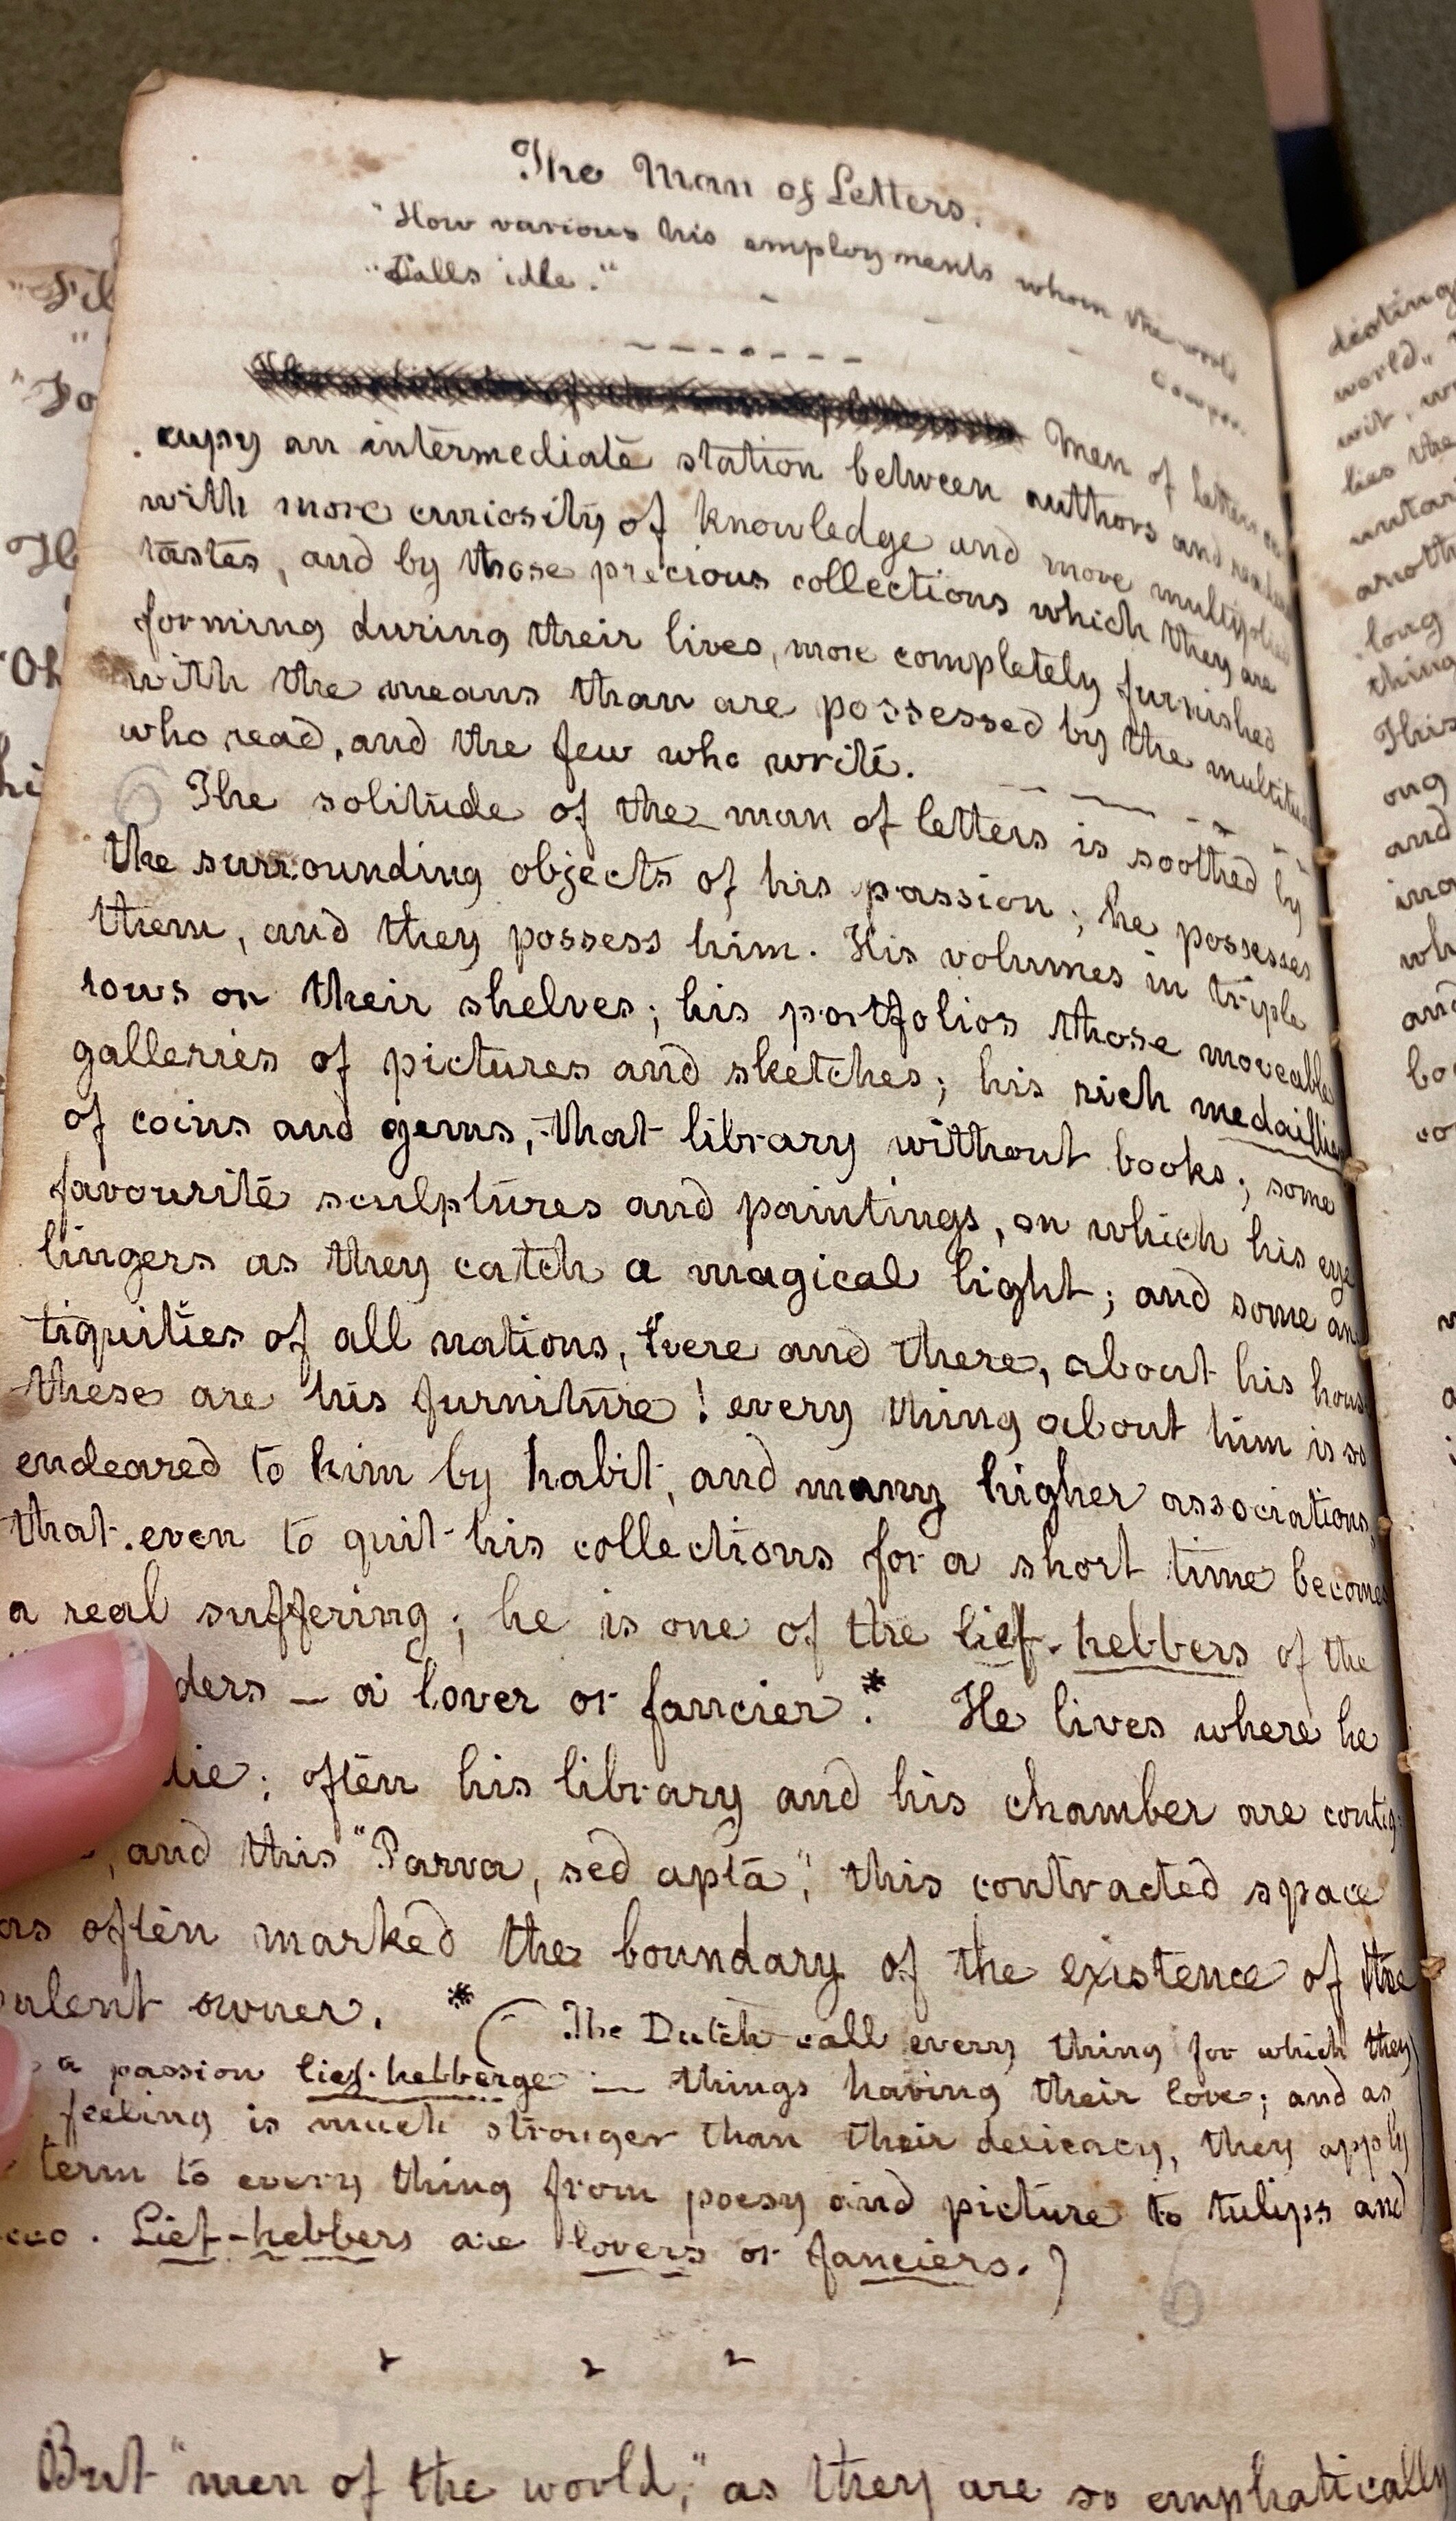 The Man of Letters.
"How various his employments whom the world
"Calls idle."
Cowper.
Men of letters oc
cupy an intermediate station between authors and readers
with more curiosity of knowledge and more multiplied
tastes, and by those precious collections which they are
forming during their lives, more completely furnished
with the means than are possessed by the multitude
who read, and the few who write.
The solitude of the man of letters is soothed by
the surrounding objects of his passion; he possesses
them, and they possess him. His volumes in triple
rows on their shelves; his portfolios those moveable
galleries of pictures and sketches; his rich medaillier
of coins and gems, that library without books; some
favourite sculptures and paintings, on which his eye
lingers as they catch a magical light; and some an
tiquities of all nations, here and there, about his hous
these are his furniture! every thing about him is so
endeared to him by habit, and many higher associations,
that even to quit his collections for a short time becomes
a real suffering; he is one of the lief-hebbers of the
ders — a lover or fancier.* He lives where he
die; often his library and his chamber are contig
, and this "Parva, sed apta", this contracted space
as often marked the boundary of the existence of the
ulent owner. * (The Dutch call every thing for which they
a passion lief-hebberge — things having their love; and as
feeling is much stronger than their delicacy, they apply
term to every thing from poesy and picture to tulips and
cco. Lief-hebbers are lovers or fanciers.)
But "men of the world," as they are so emphatically
"Fil
"Fo
disting
world,"
wit, w
lies the
untar
another
long
thing
This
ong
and
ina
wh
and
bo
co